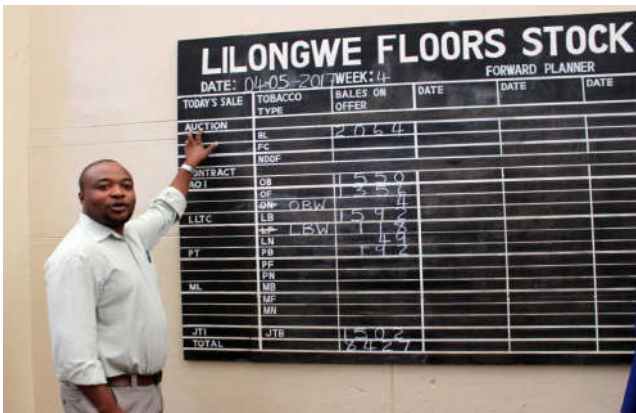 LILONGWE FLOORS STOCK
DATE: 04-05-2017 WEEK: 4 FORWARD PLANNER
TODAY'S SALE TOBACCO TYPE BALES ON OFFER DATE DATE DATE
AUCTION
BL 2064
FC
NDDF
CONTRACT
AOI OB 1550
OF 352
ON OBW 4
LLTC LB 1592
LF LBW
LN 49
PT PB 192
PF
PN
ML MB
MF
MN
JTI JTB 1502
TOTAL 8427